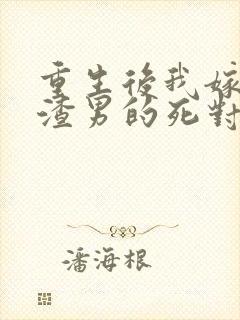 重生後我嫁
渣男的死對
潘海根